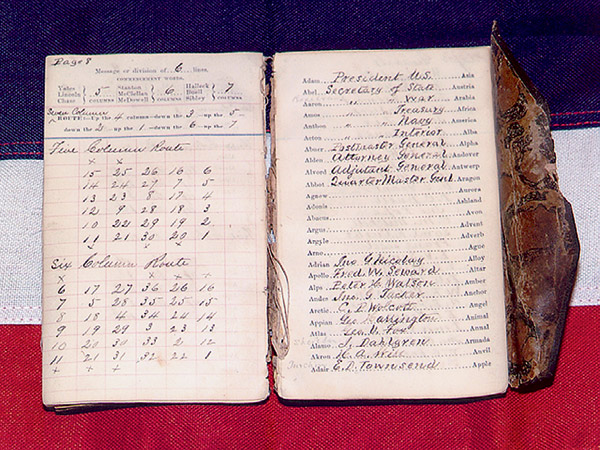 Page 8
Message or division of 6 lines.
COMMENCEMENT WORDS.
Yates Stanton Halleck
Lincoln 5 McClellan 6 Buell 7
Chase COLUMNS McDowell COLUMNS Sibley COLUMNS
Seven Column
ROUTE:—Up the 4 column—down the 3—up the 5—
down the 2—up the 1—down the 6—up the 7
Five Column Route
x x
15 25 26 16 6
14 24 27 7 5
13 23 8 17 4
12 9 28 18 3
10 22 29 19 2
11 21 30 20 1
Six Column Route
6 17 27 36 26 16
7 5 28 35 25 15
8 18 4 34 24 14
9 19 29 3 23 13
10 20 30 33 2 12
11 21 31 32 22 1
Adam President U.S. Asia
Abel Secretary of State Austria
Aaron " " War Arabia
Amos " " Treasury Africa
Anthon " " Navy America
Anton " " Interior Alba
Abner Postmaster General Alpha
Abden Attorney General Andover
Alvord Adjutant General Antwerp
Abbot Quarter Master Genl. Aragon
Agnew Aurora
Adonis Ashland
Abacus
Argus Avon
Argus Advant
Argyle Adverb
Arno Ague
Adrian Jno G Nicolay Alloy
Apollo Fred. W. Seward Altar
Alps Peter H. Watson Amber
Andes Jno. G. Tucker Anchor
Arctic C. P. Wolcott Angel
Appian Geo Harrington Animal
Atlas Geo. V. Fox Annal
Alamo J. Dahlgren Armada
Akron H. A. Anvil
Adair E. D. Townsend Apple